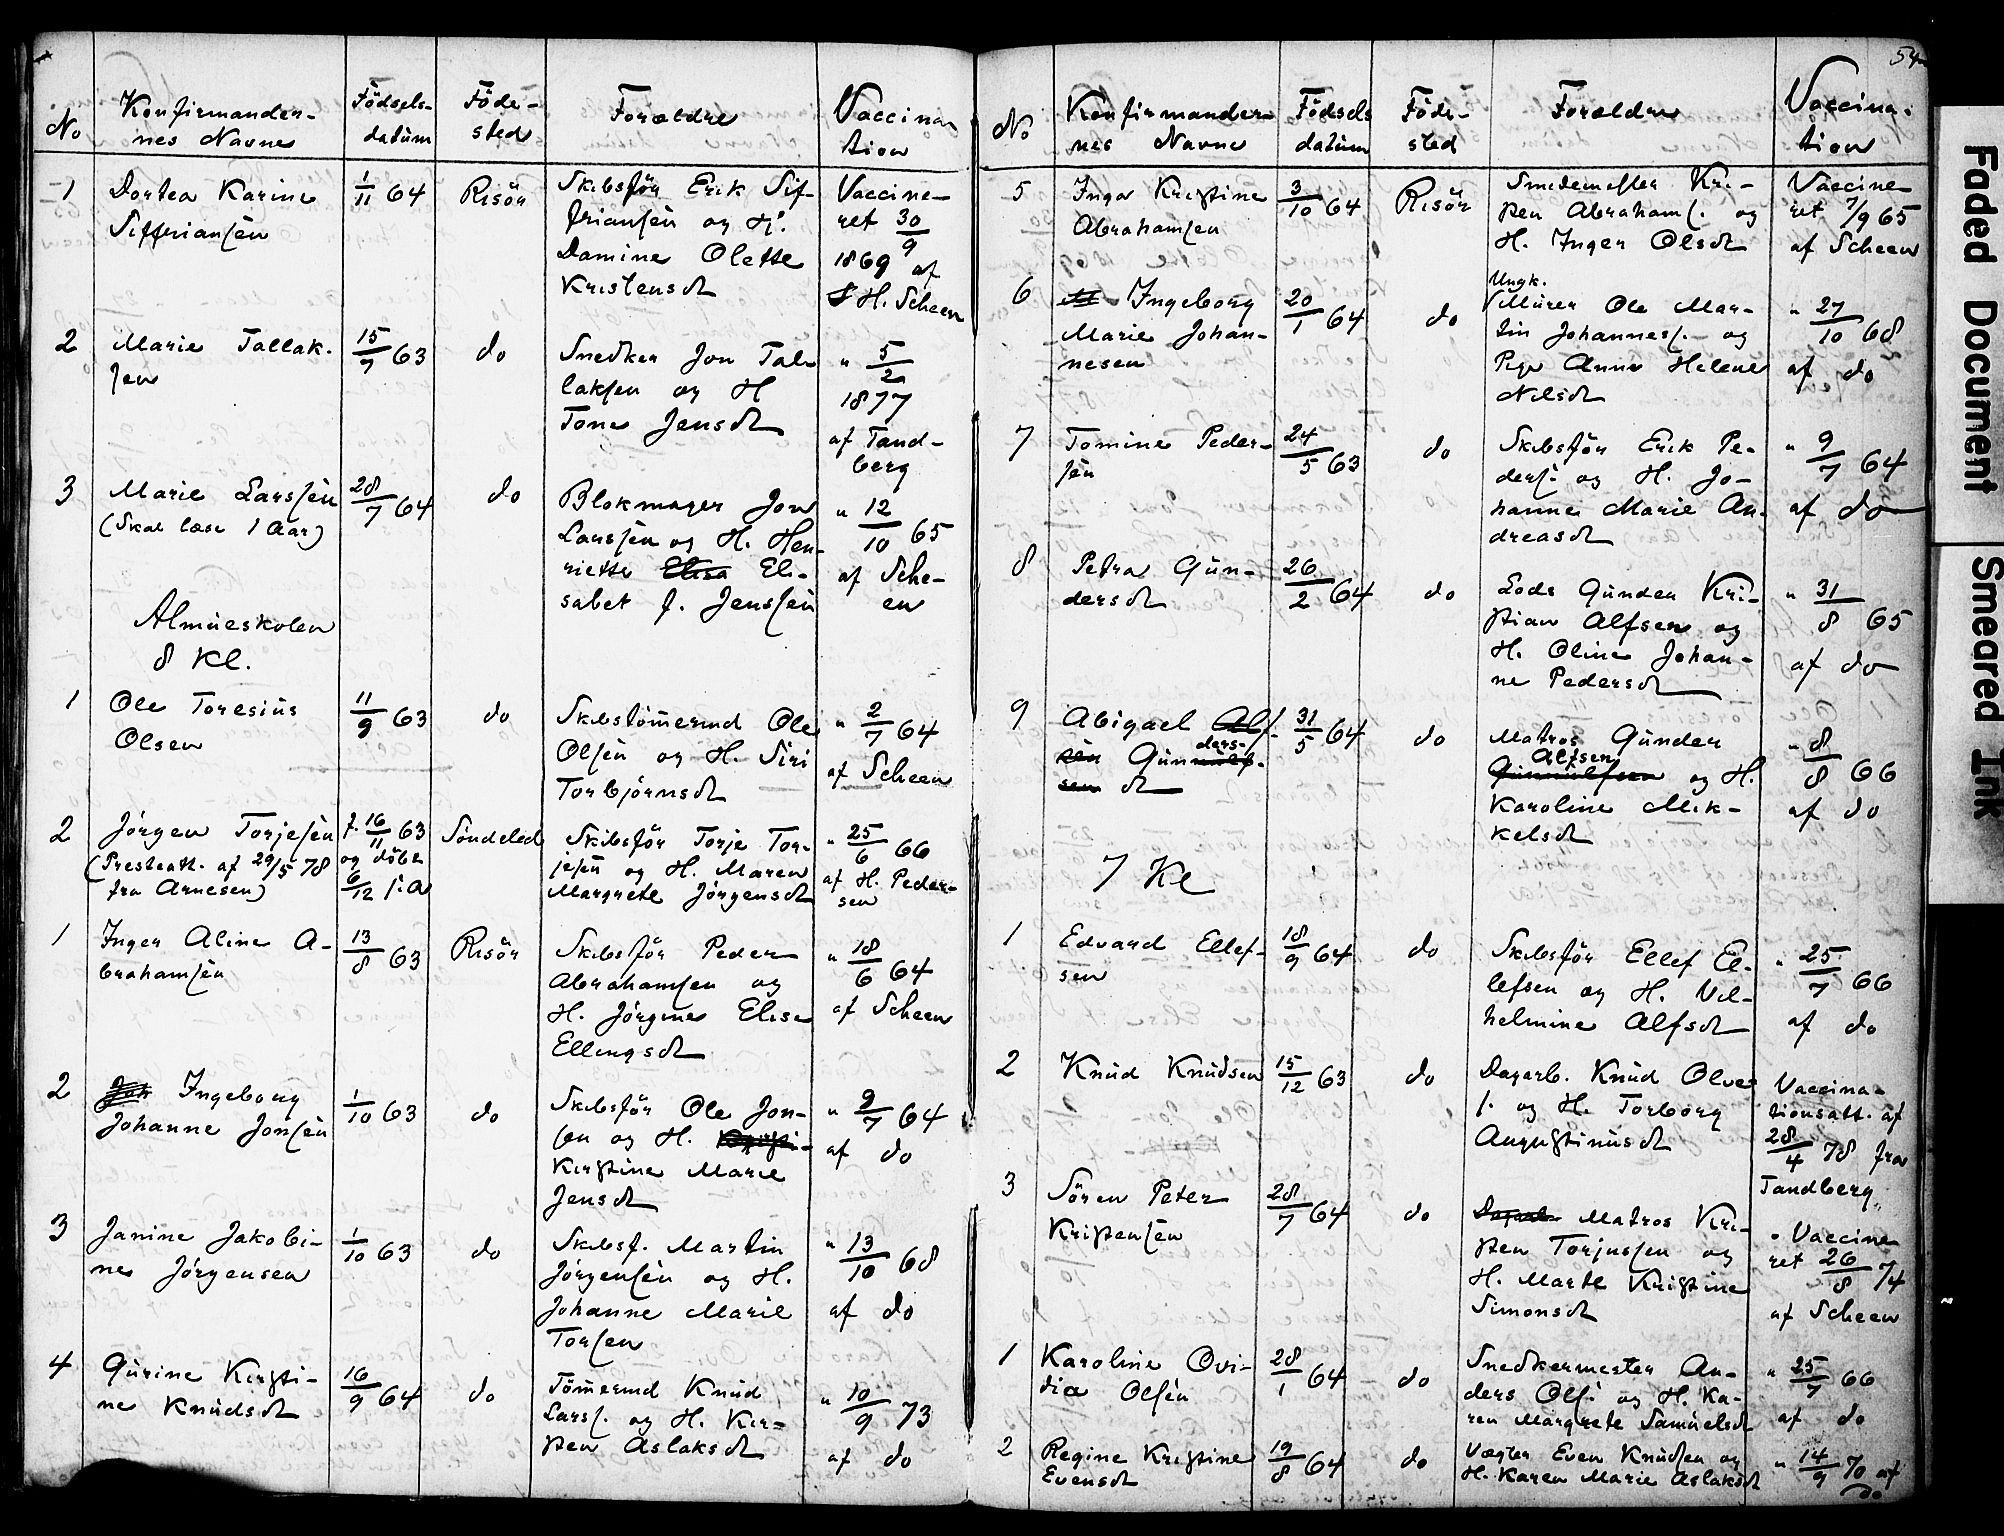 No
Konfirmander-
nes Navne
Födsels-
datum
Föde-
sted
Forældre
Vaccina
tion
1
Dortea Karine
Siffriansen
1/11 64
Risör
Skibsför Erik Sif-
friansen og H.
Damine Olette
Kristensdt
Vaccine-
ret 30/9
1869 af
H. Scheen
2
Marie Tallak-
sen
15/7 63
do
Snedker Jon Tal-
laksen og H
Tone Jensdt
" 5/2
1877
af Tand-
berg
3
Marie Larssen
(Skal læse 1 Aar)
28/7 64
do
Blokmager Jon
Larssen og H. Hen-
riette Elisa Eli-
sabet f. Jenssen
" 12/10 65
af Sche-
en
Almueskolen
8 Kl.
1
Ole Toresius
Olsen
11/9 63
do
Skibstömermd Ole
Olsen og H. Siri
Torbjörnsdt
" 2/7 64
af Scheen
2
Jörgen Torjesen
(Presteatt. af 29/5 78
fra Arnesen)
f. 16/11 63
og döbt
6/12 s: a
Söndeled
Skibsför Torje Tor-
jesen og H. Maren
Margrete Jörgensdt
" 25/6 66
af H. Peder-
sen
1
Inger Aline A-
brahamsen
13/8 63
Risör
Skibsför Peder
Abrahamsen og
H. Jörgine Elise
Ellingsdt
" 18/6 64
af Scheen
2
Ingeborg
Johanne Jonsen
1/10 63
do
Skibsför Ole Jon-
sen og H.
Kirstine Marie
Jensdt
" 9/7 64
af do
3
Janine Jakobi-
ne Jörgensen
1/10 63
do
Skibsf. Martin
Jörgensen og H.
Johanne Marie
Torsen
" 13/10 68
af do
4
Gurine Kirsti-
ne Knudsdt
16/9 64
do
Tömermd Knud
Larss. og H. Kir-
sten Aslaksdt
" 10/9 73
af do
54
No
Konfirmander-
nes Navne
Födsels
datum
Föde-
sted
Forældre
Vaccina-
tion
5
Inga Kristine
Abrahamsen
3/10 64
Risör
Smedemester Kri-
sten Abrahams. og
H. Inger Olsdt
Vaccine-
ret 7/9 65
af Scheen
6
Ingeborg
Marie Johan-
nesen
20/1 64
do
Ungk.
Murer Ole Mar-
tin Johanness. og
Pige Anne Helene
Nilsdt
" 27/10 68
af do
7
Tomine Peder-
sen
24/5 63
do
Skibsför Erik Pe-
ders. og H. Jo-
hanne Marie An-
dreasdt
" 9/7 64
af do
8
Petra Gun-
dersdt
26/2 64
do
Lods Gunder Kri-
stian Alfsen og
H. Oline Johan-
ne Pedersdt
" 31/8 65
af do
9
Abigael Alf-
ders-
sen Gunnulf-
sen dt
31/5 64
do
Matros Gunder
Alfsen
Gunnulfsen og H.
Karoline Mik-
kelsdt
" 8/8 66
af do
7 Kl
1
Edvard Ellef-
sen
18/9 64
do
Skibsför Ellef El-
lefsen og H. Vil-
helmine Alfsdt
" 25/7 66
af do
2
Knud Knudsen
15/12 63
do
Dagarb. Knud Olve
s. og H. Torborg
Augustinusdt
Vaccina-
tionsatt. af
28/4 78 fra
Tandberg
3
Sören Peter
Kristensen
28/7 64
do
Dagarb. Matros Kri-
sten Torjussen og
H. Marte Kristine
Simonsdt
" Vaccine
ret 26/8 74
af Scheen
1
Karoline Ovi-
dia Olsen
28/1 64
do
Snedkermester An-
ders Ols. og H. Ka-
ren Margrete Samuelsdt
" 25/7 66
af do
2
Regine Kristine
Evensdt
19/8 64
do
Vægter Even Knudsen og
H. Karen Marie Aslaksdt
" 14/9 70 af
do
Faded Document
Smeared Ink